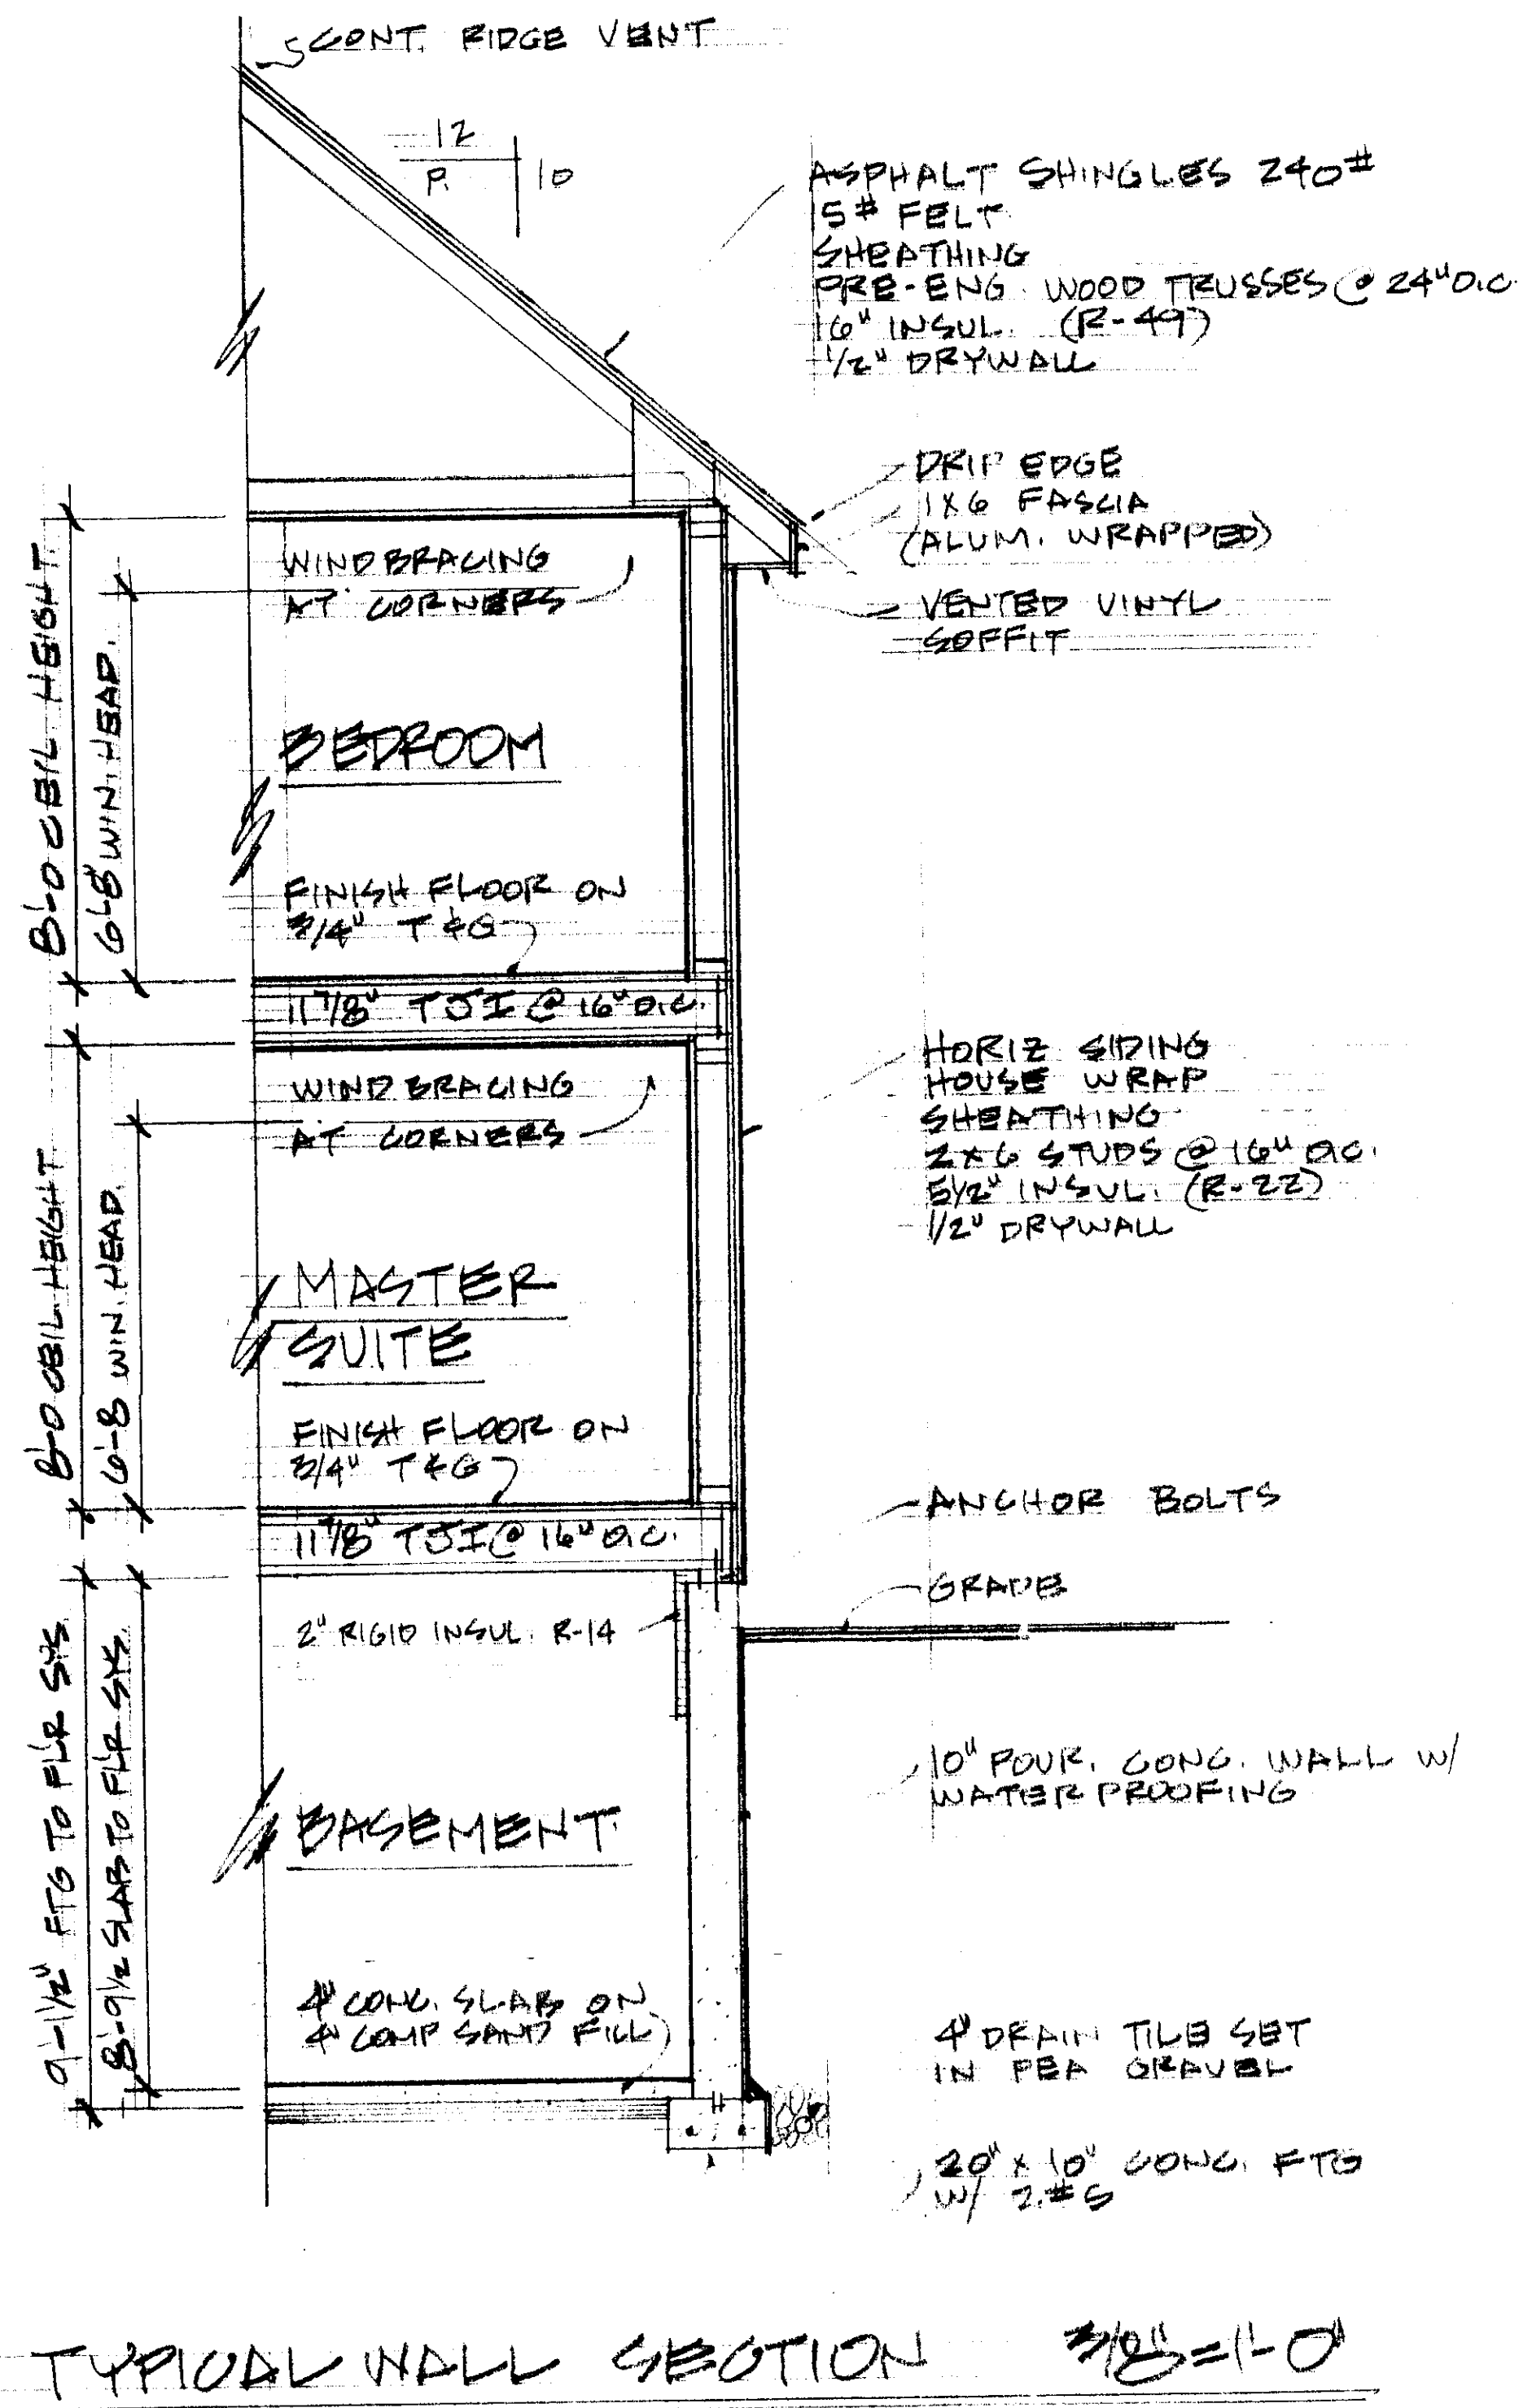 CONT. RIDGE VENT
12
P. 10
ASPHALT SHINGLES 240#
15# FELT
SHEATHING
PRE-ENG. WOOD TRUSSES @ 24" O.C.
16" INSUL. (R-49)
1/2" DRYWALL
DRIP EDGE
1X6 FASCIA
(ALUM. WRAPPED)
VENTED VINYL
SOFFIT
8'-0 CEIL HEIGHT
6'-8" WIN. HEAD.
WIND BRACING
AT CORNERS
BEDROOM
FINISH FLOOR ON
3/4" T & G
11 7/8" TJI @ 16" O.C.
HORIZ SIDING
HOUSE WRAP
SHEATHING
2X6 STUDS @ 16" O.C.
5 1/2" INSUL. (R-22)
1/2" DRYWALL
8'-0 CEIL HEIGHT
6'-8 WIN. HEAD.
WIND BRACING
AT CORNERS
MASTER
SUITE
FINISH FLOOR ON
3/4" T & G
11 7/8" TJI @ 16" O.C.
ANCHOR BOLTS
GRADE
9'-1 1/2" FTG TO FLR SYS
8'-9 1/2 SLAB TO FLR SYS.
2" RIGID INSUL. R-14
BASEMENT
10" POUR. CONC. WALL W/
WATERPROOFING
4" CONC. SLAB ON
4" COMP SAND FILL
4" DRAIN TILE SET
IN PEA GRAVEL
20" X 10" CONC. FTG
W/ 2 #5
TYPICAL WALL SECTION 3/8"=1'-0"